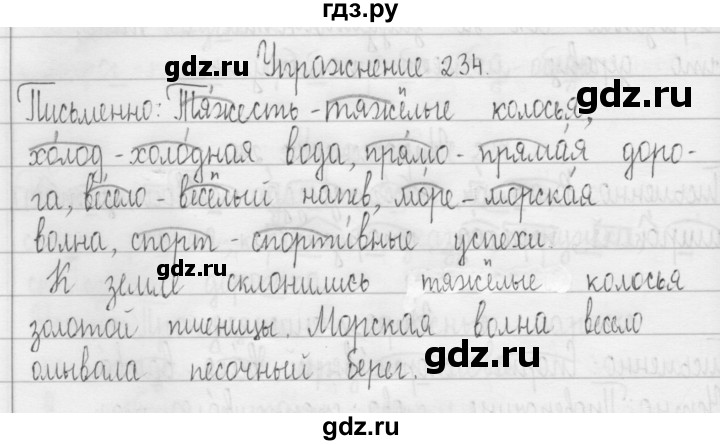 гдз.ру
Упражнение 234.
Письменно: Тя́жесть - тяжёлые колосья,
хо́лод - холо́дная вода, пря́мо - пряма́я доро-
га, ве́село - весёлый напев, мо́ре - морска́я
волна, спорт - спорти́вные успехи.
К земле склонились тяжёлые колосья
золотой пшеницы. Морская волна весело
омывала песочный берег.
gdz.ru
gdz.ru
gdz.ru
gdz.ru
gdz.ru